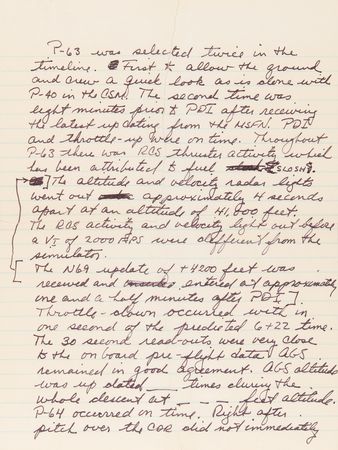 P-63 was selected twice in the
timeline. First to allow the ground
and crew a quick look as is done with
P-40 in the CSM. The second time was
eight minutes prior to PDI after receiving
the latest updating from the MSFN. PDI
and throttle-up were on time. Throughout
P-63 there was RCS thruster activity which
has been attributed to fuel SLOSH.
The altitude and velocity radar lights
went out approximately 4 seconds
apart at an altitude of 41,000 feet.
The RCS activity and velocity light out before
a VI of 2000 FPS were different from the
simulator.
[The N69 update of +4200 feet was
received and entered at approximately
one and a half minutes after PDI].
Throttle-down occurred with in
one second of the predicted 6+22 time.
The 30 second read-outs were very close
to the onboard pre-flight data. AGS
remained in good agreement. AGS altitude
was up dated ___ times during the
whole descent at _ _ _ feet altitude.
P-64 occurred on time. Right after
pitch over the CDR did not immediately